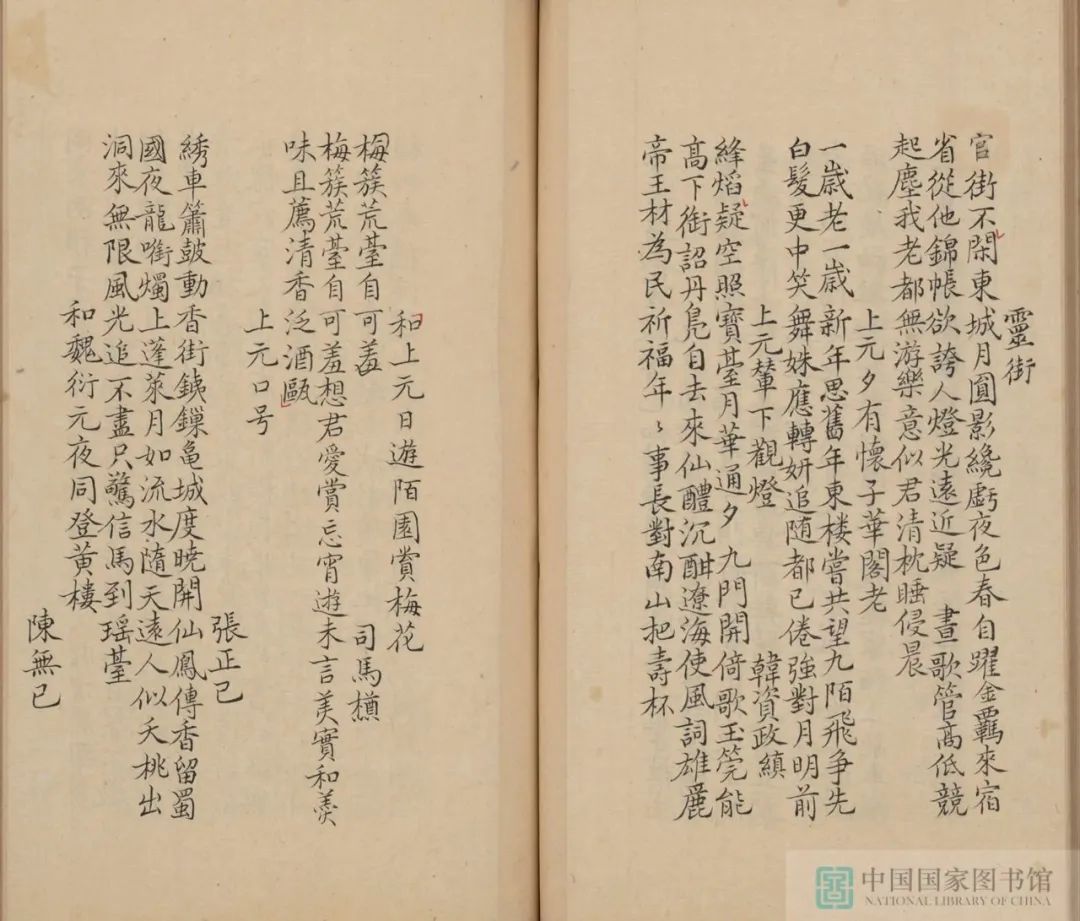 靈街
官街不閑東城月圓影纔虧夜色春自躍金羈來宿
省從他錦帳欲誇人燈光遠近疑 晝歌管高低競
起塵我老都無游樂意似君清枕睡侵晨
上元夕有懷子華閣老
一歲老一歲新年思舊年東樓嘗共望九陌飛爭先
白髮更中笑舞姝應轉妍追随都已倦強對月明前
上元輦下觀燈 韓資政縝
絳熖疑空照寶臺月華通夕九門開倚歌玉筦能
高下銜詔丹鳧自去來仙醴沉酣遼海使風詞雄麗
帝王材為民祈福年〻事長對南山把壽杯
和上元日遊陌園賞梅花
司馬櫄
梅簇荒臺自可羞
梅簇荒臺自可羞想君愛賞忘宵遊未言美實和羹
味且薦清香泛酒甌
上元口号
張正己
綉車簫鼓動香街銕鏁龜城度曉開仙鳳傳香留蜀
國夜龍嘴燭上蓬萊月如流水隨天遠人似夭桃出
洞來無限風光追不盡只驚信馬到瑶臺
和魏衍元夜同登黄樓
陳無已
中国国家图书馆
NATIONAL LIBRARY OF CHINA